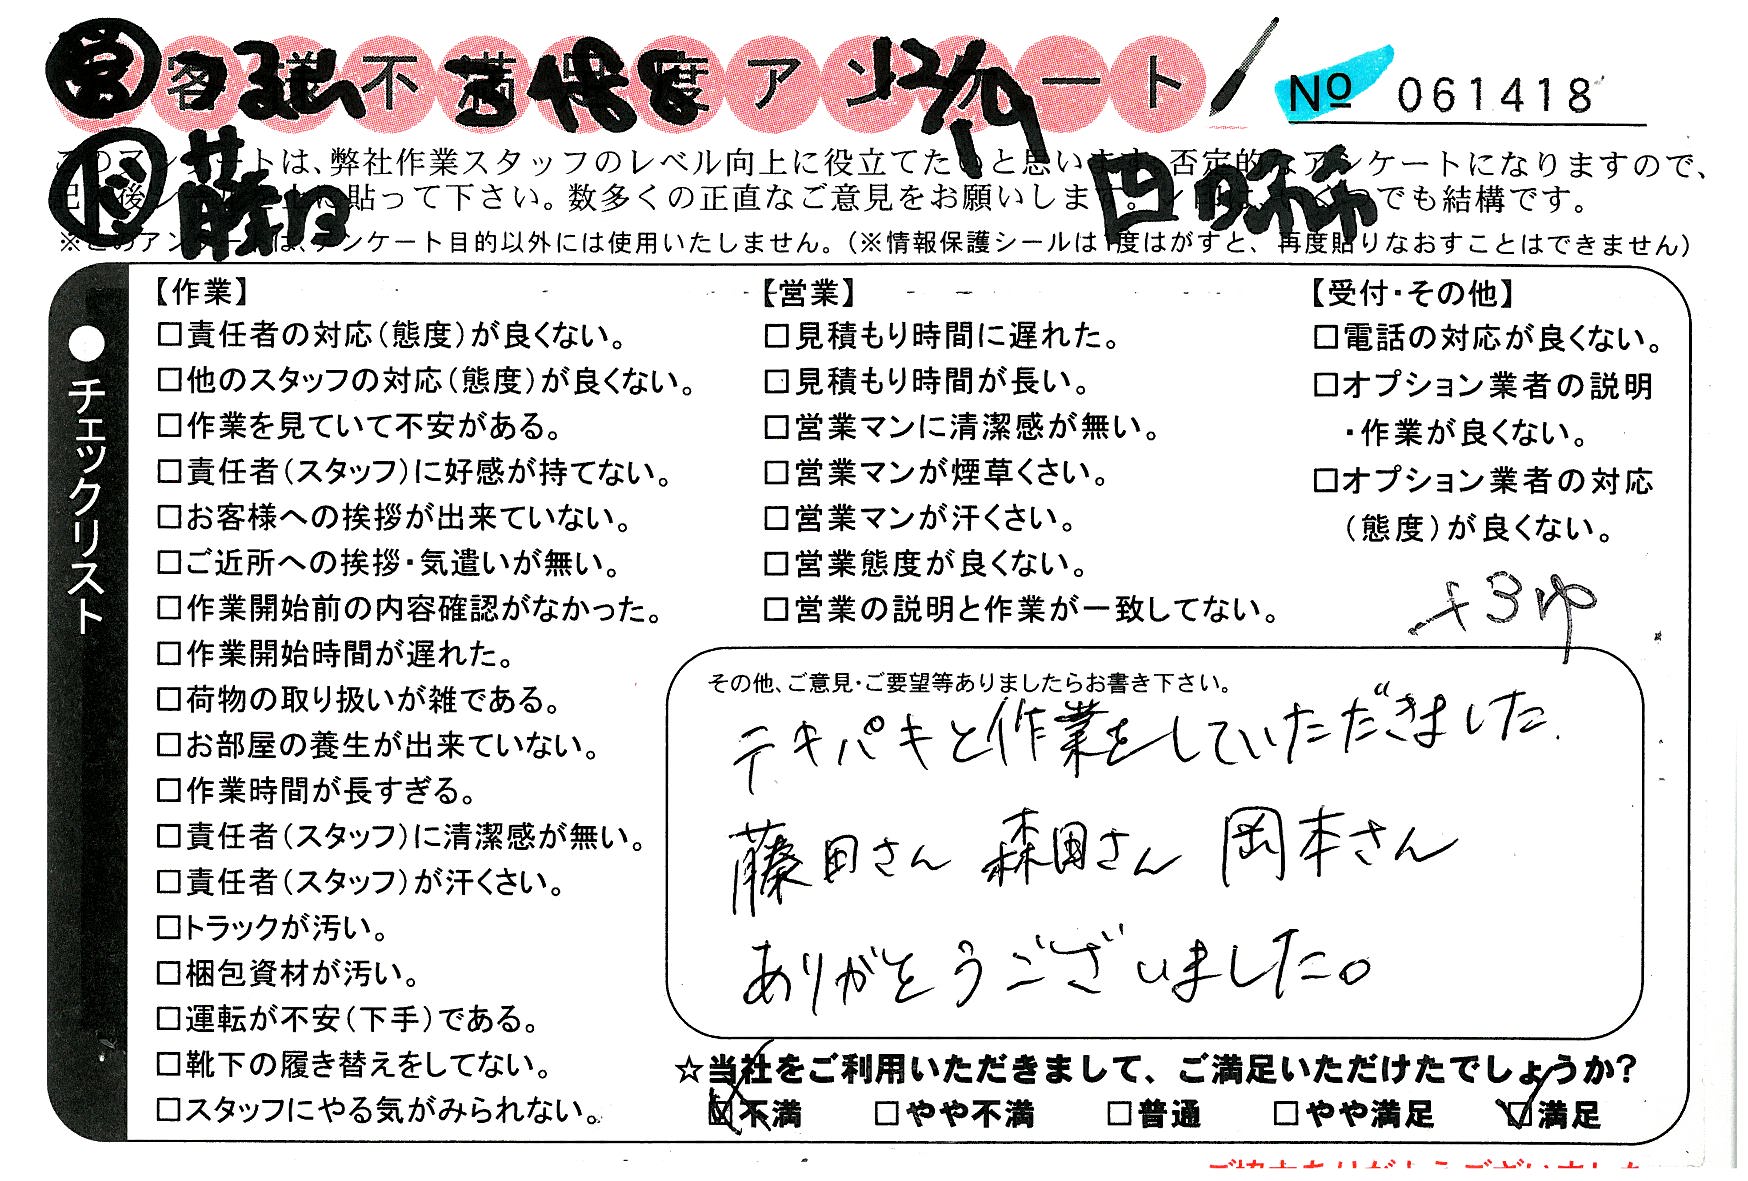 客様不満足度アンケート
No 061418
12/19
このアンケートは、弊社作業スタッフのレベル向上に役立てたいと思います。否定的なアンケートになりますので、
後 に貼って下さい。数多くの正直なご意見をお願いします。 でも結構です。
※このアンケートは、アンケート目的以外には使用いたしません。（※情報保護シールは1度はがすと、再度貼りなおすことはできません）
営
ド 藤田
●チェックリスト
【作業】
□責任者の対応（態度）が良くない。
□他のスタッフの対応（態度）が良くない。
□作業を見ていて不安がある。
□責任者（スタッフ）に好感が持てない。
□お客様への挨拶が出来ていない。
□ご近所への挨拶・気遣いが無い。
□作業開始前の内容確認がなかった。
□作業開始時間が遅れた。
□荷物の取り扱いが雑である。
□お部屋の養生が出来ていない。
□作業時間が長すぎる。
□責任者（スタッフ）に清潔感が無い。
□責任者（スタッフ）が汗くさい。
□トラックが汚い。
□梱包資材が汚い。
□運転が不安（下手）である。
□靴下の履き替えをしてない。
□スタッフにやる気がみられない。
【営業】
□見積もり時間に遅れた。
□見積もり時間が長い。
□営業マンに清潔感が無い。
□営業マンが煙草くさい。
□営業マンが汗くさい。
□営業態度が良くない。
□営業の説明と作業が一致してない。
【受付・その他】
□電話の対応が良くない。
□オプション業者の説明
・作業が良くない。
□オプション業者の対応
（態度）が良くない。
+3ゆ
その他、ご意見・ご要望等ありましたらお書き下さい。
テキパキと作業をしていただきました.
藤田さん 森田さん 岡本さん
ありがとうございました。
☆当社をご利用いただきまして、ご満足いただけたでしょうか？
☑不満 □やや不満 □普通 □やや満足 ☑満足
ご協力ありがとうございました